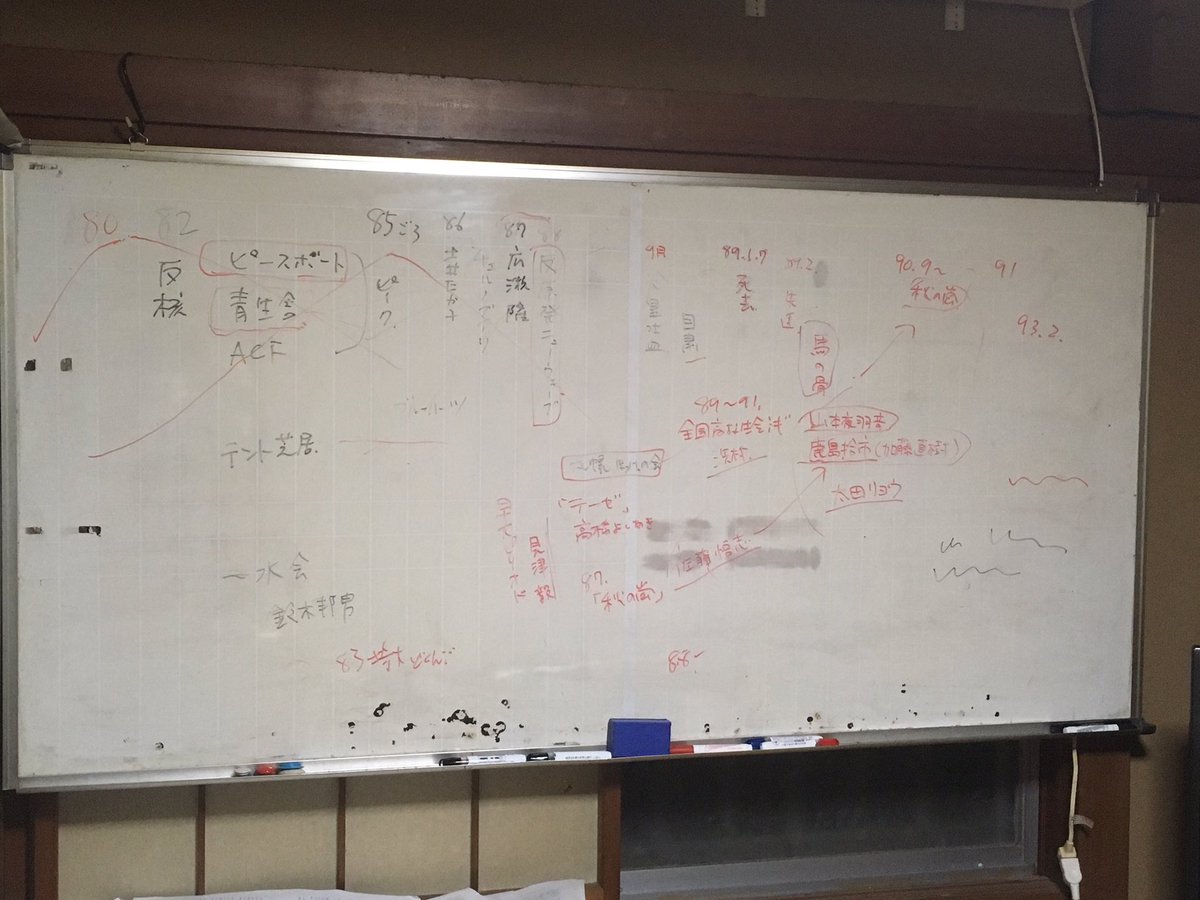 80
82
反核
ピースボート
青生舎
ACF
85ごろ
ピーク
86
チェルノブイリ
87
広瀬隆
反原発ニューウェーブ
9月
自粛
89.1.7
死去
89.2
馬の骨
90.9〜
秋の嵐
91
93.2.
89〜91.
全国高校生会議
山本夜羽音
鹿島拾市(加藤直樹)
太田リョウ
テント芝居
「テーゼ」
高橋よしあき
見津毅
佐藤悟志
87.
「秋の嵐」
一水会
鈴木邦男
83
88〜